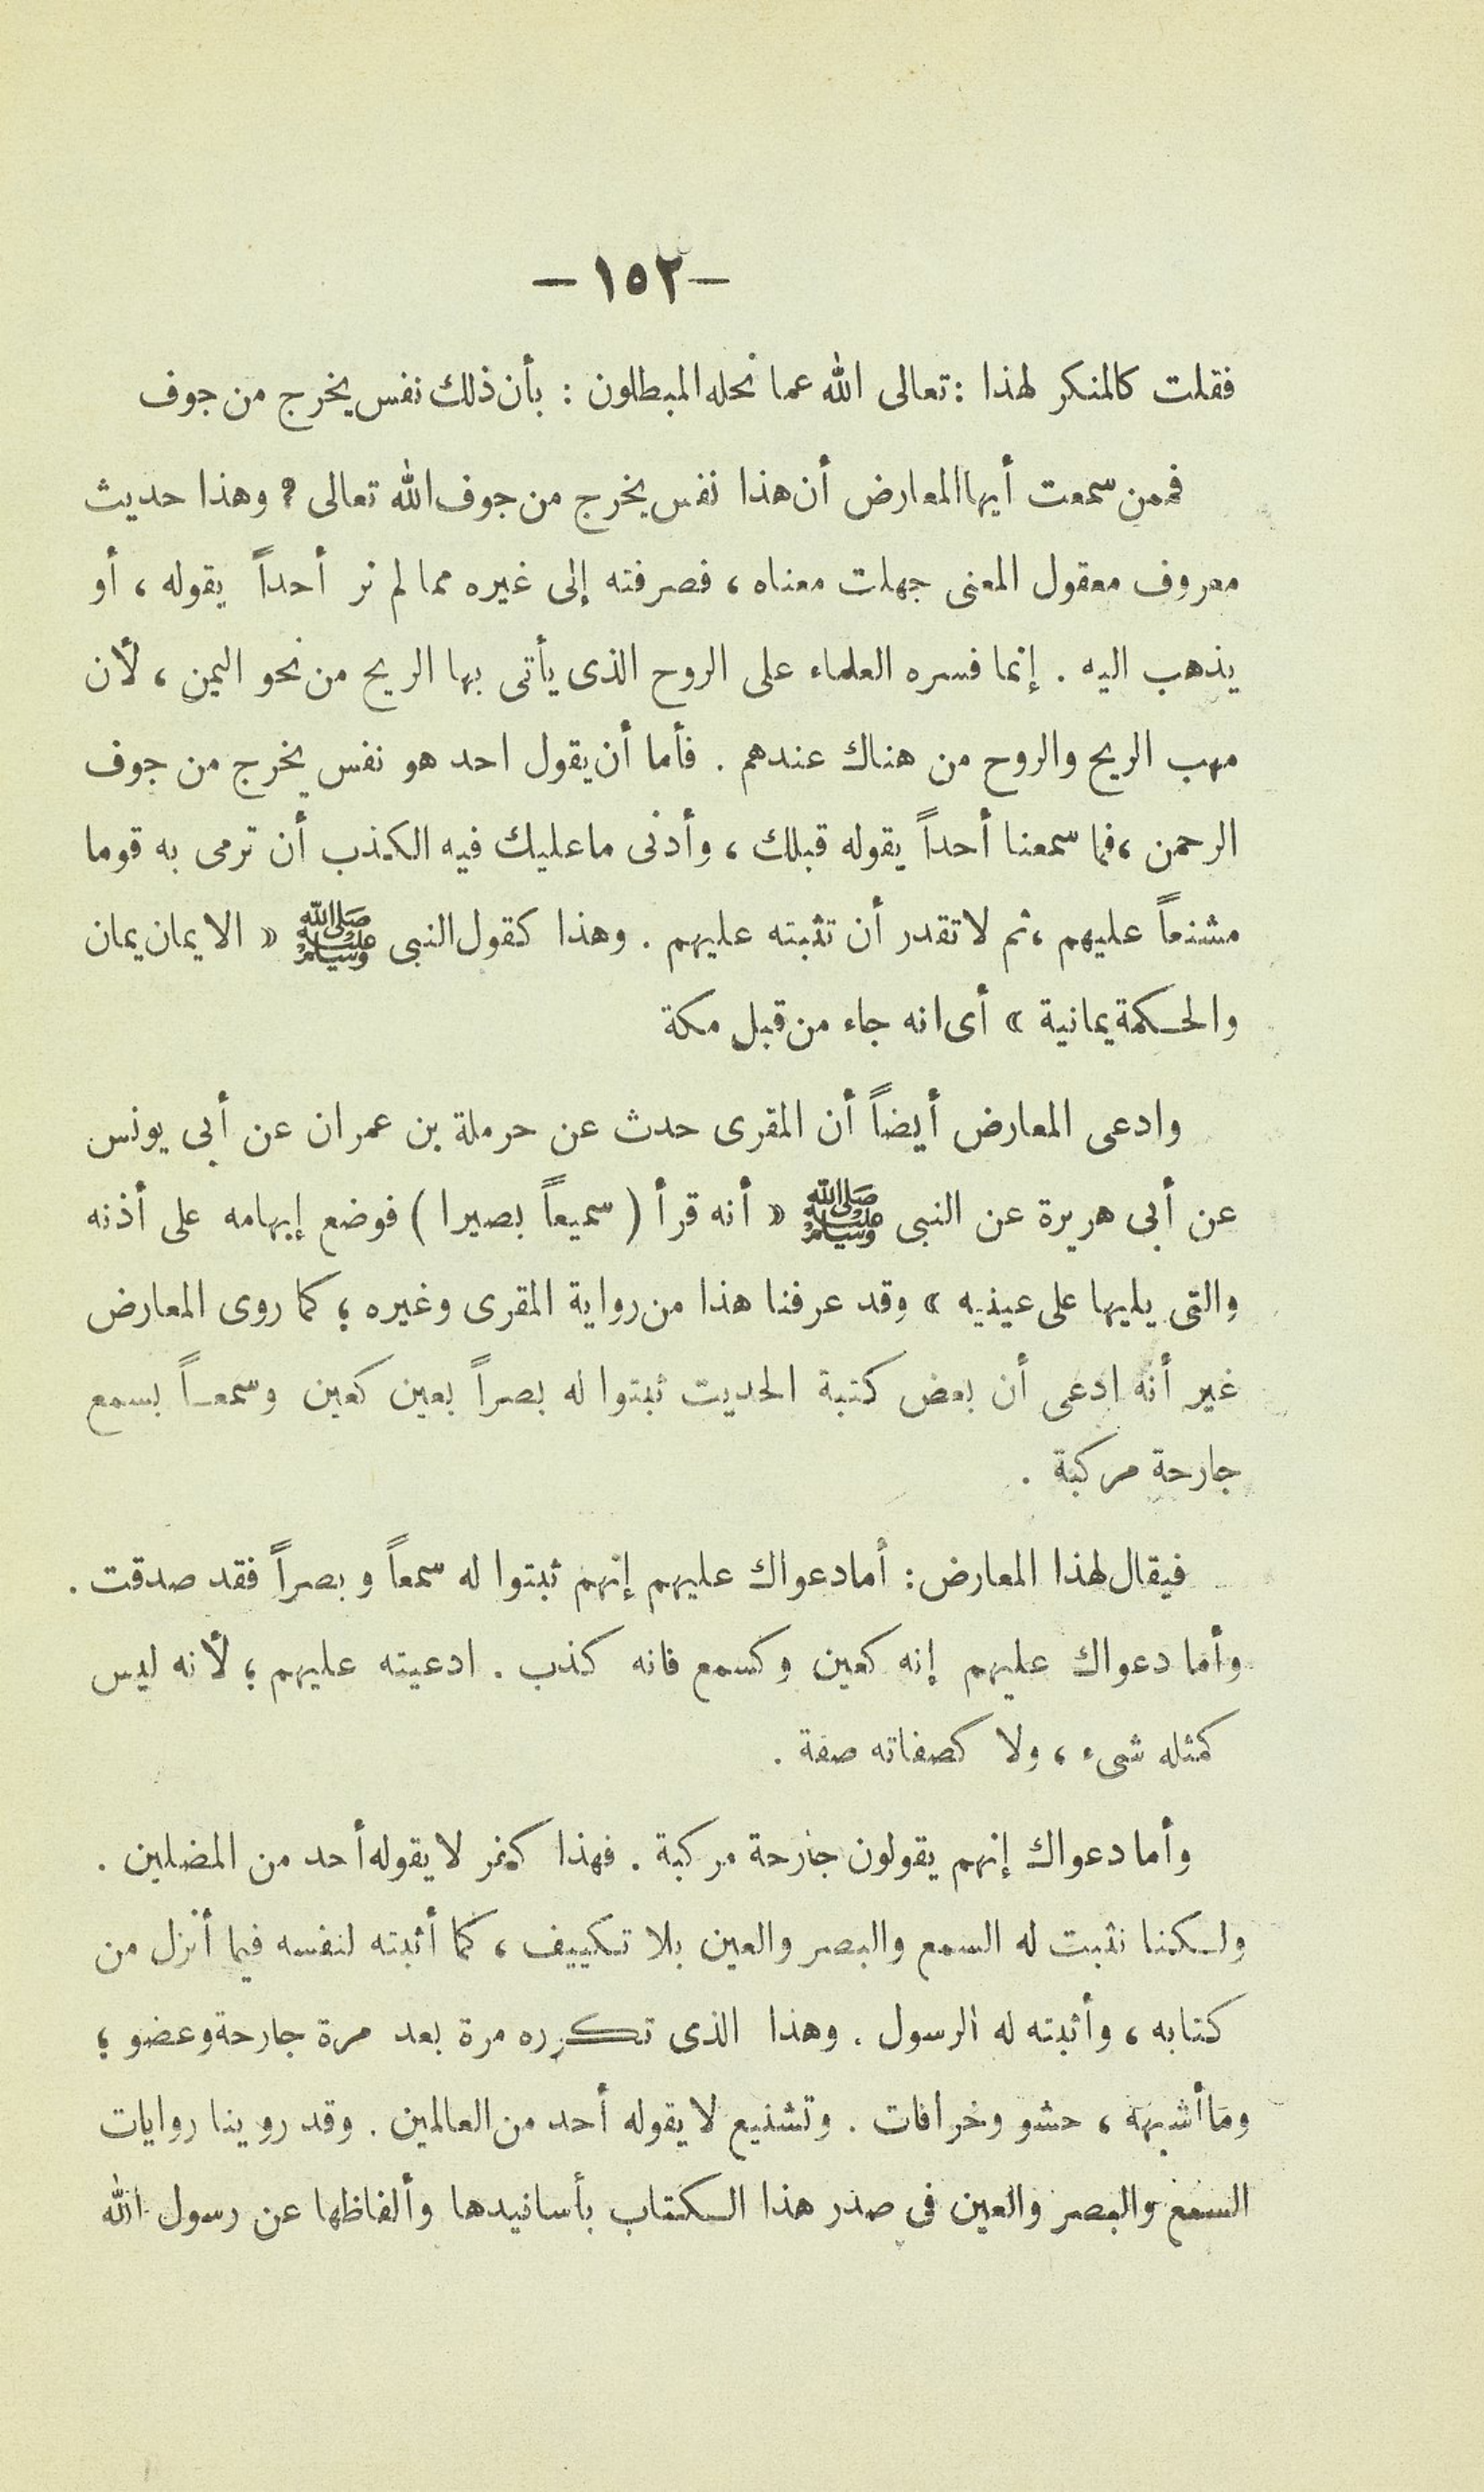 -١٥٢-
فقلت كالمنكر لهذا : تعالى الله عما نحله المبطلون : بأن ذلك نفس يخرج من جوف
فممن سمعت أيها المعارض أن هذا نفس يخرج من جوف الله تعالى ؟ وهذا حديث
معروف معقول المعنى جهلت معناه ، فصرفته إلى غيره مما لم نر أحداً يقوله ، أو
يذهب اليه . إنما فسره العلماء على الروح الذى يأتى بها الريح من نحو اليمن ، لأن
مهب الريح والروح من هناك عندهم . فأما أن يقول احد هو نفس يخرج من جوف
الرحمن ، فما سمعنا أحداً يقوله قبلك ، وأدنى ما عليك فيه الكذب أن ترمى به قوما
مشنعاً عليهم ، ثم لا تقدر أن تثبته عليهم . وهذا كقول النبى ﷺ « الايمان يمان
والحكمة يمانية » أى انه جاء من قبل مكة
وادعى المعارض أيضاً أن المقرى حدث عن حرملة بن عمران عن أبى يونس
عن أبى هريرة عن النبى ﷺ « أنه قرأ ( سميعاً بصيرا ) فوضع إبهامه على أذنه
والتى يليها على عينيه » وقد عرفنا هذا من رواية المقرى وغيره ؛ كما روى المعارض
غير أنه ادعى أن بعض كتبة الحديت ثبتوا له بصراً بعين كعين وسمعاً بسمع
جارحة مركبة .
فيقال لهذا المعارض : أما دعواك عليهم إنهم ثبتوا له سمعاً وبصراً فقد صدقت .
وأما دعواك عليهم إنه كعين وكسمع فانه كذب . ادعيته عليهم ؛ لأنه ليس
كمثله شىء ، ولا كصفاته صفة .
وأما دعواك إنهم يقولون جارحة مركبة . فهذا كفر لا يقوله أحد من المضلين .
ولكنا نثبت له السمع والبصر والعين بلا تكييف ، كما أثبته لنفسه فيما أنزل من
كتابه ، وأثبته له الرسول . وهذا الذى تكرره مرة بعد مرة جارحة وعضو ؛
وما أشبهه ، حشو وخرافات . وتشنيع لا يقوله أحد من العالمين . وقد روينا روايات
السمع والبصر والعين فى صدر هذا الكتاب بأسانيدها وألفاظها عن رسول الله